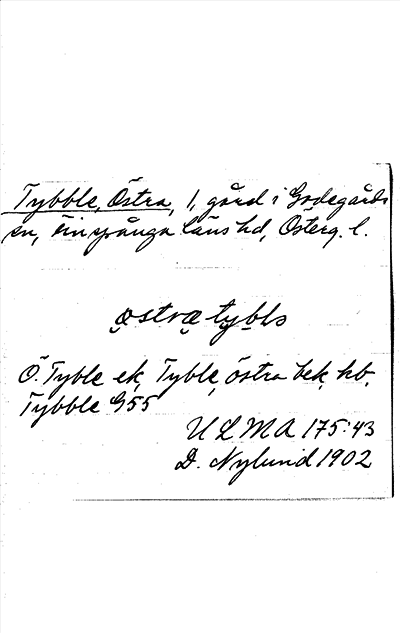 Tybble, Östra, 1, gård i Godegårds
sn, Finspånga läns hd, Österg. l.
öströ tybls
Ö. Tyble ek, Tyble, östra bek, kb.
Tybble G55
ULMA 175:43
D. Nylund 1902